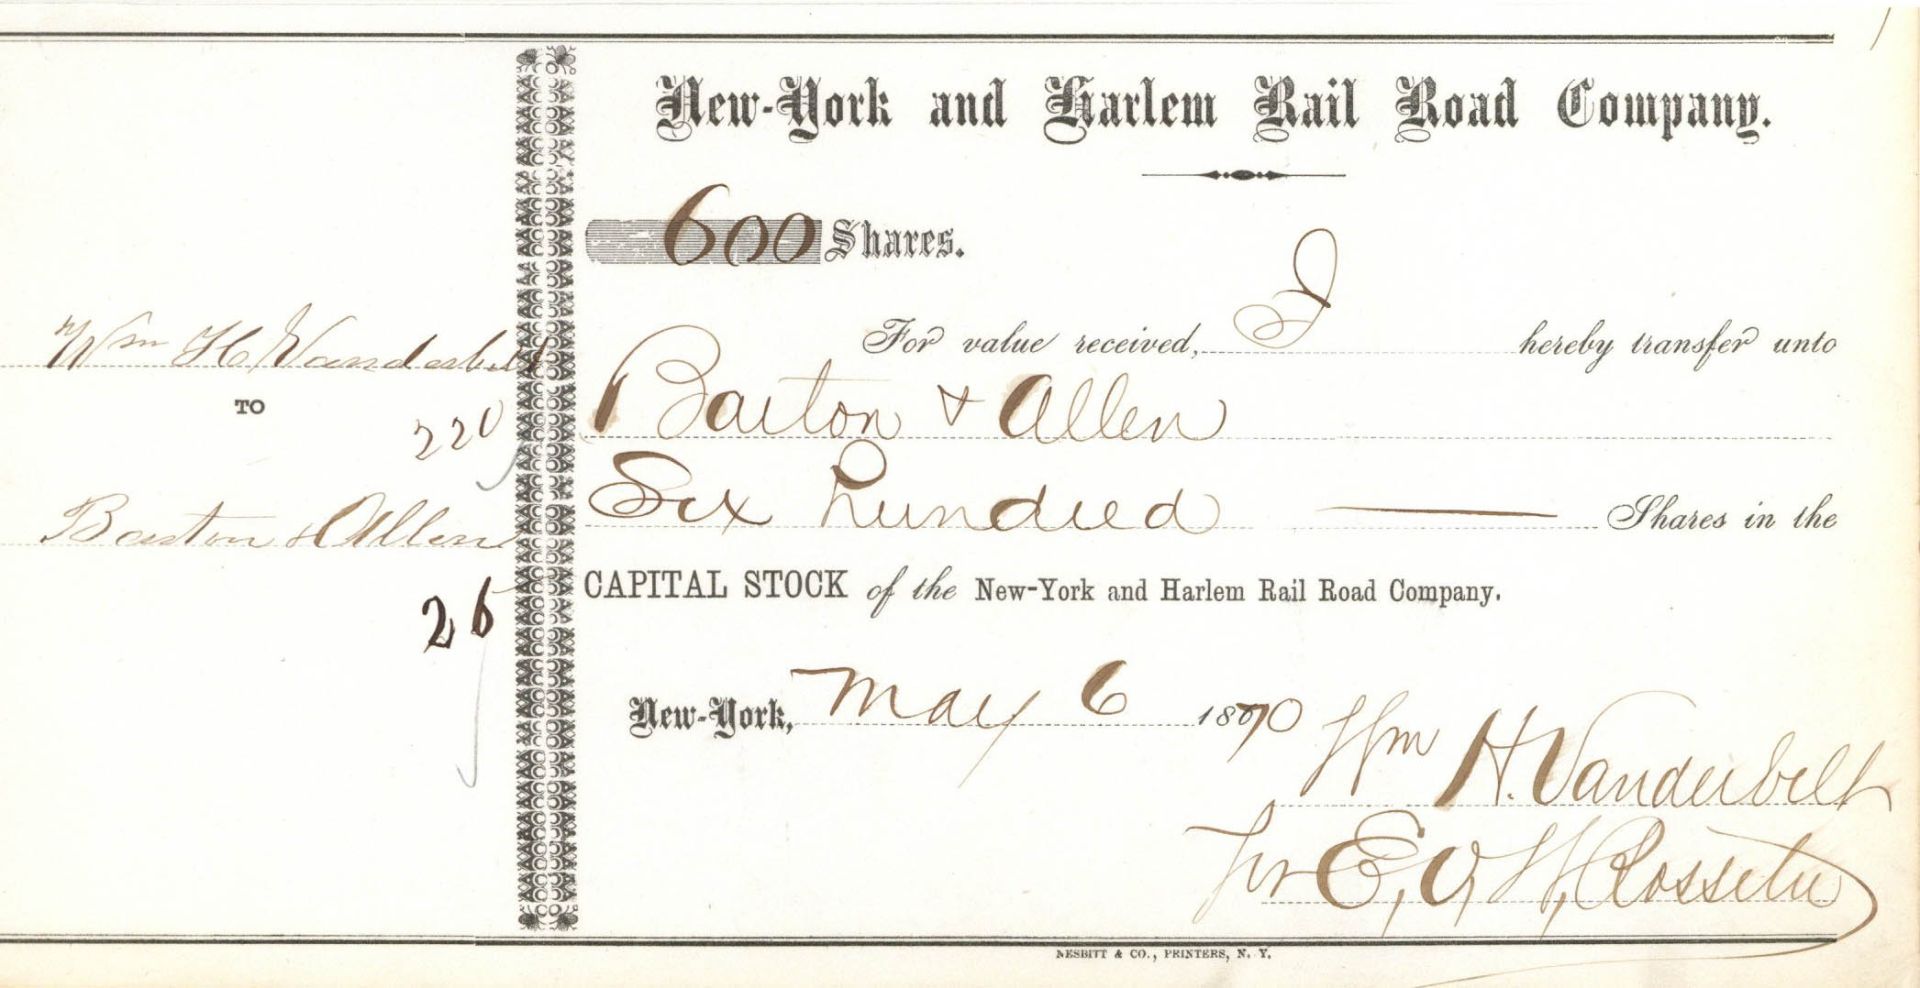 New-York and Harlem Rail Road Company.
600 Shares.
For value received, I hereby transfer unto
Barton & Allen
Six hundred Shares in the
CAPITAL STOCK of the New-York and Harlem Rail Road Company.
New-York, May 6 1870
Wm H. Vanderbilt
E. V. W. Rossiter
NESBITT & CO., PRINTERS, N. Y.
Wm H Vanderbilt
TO
220
Barton & Allen